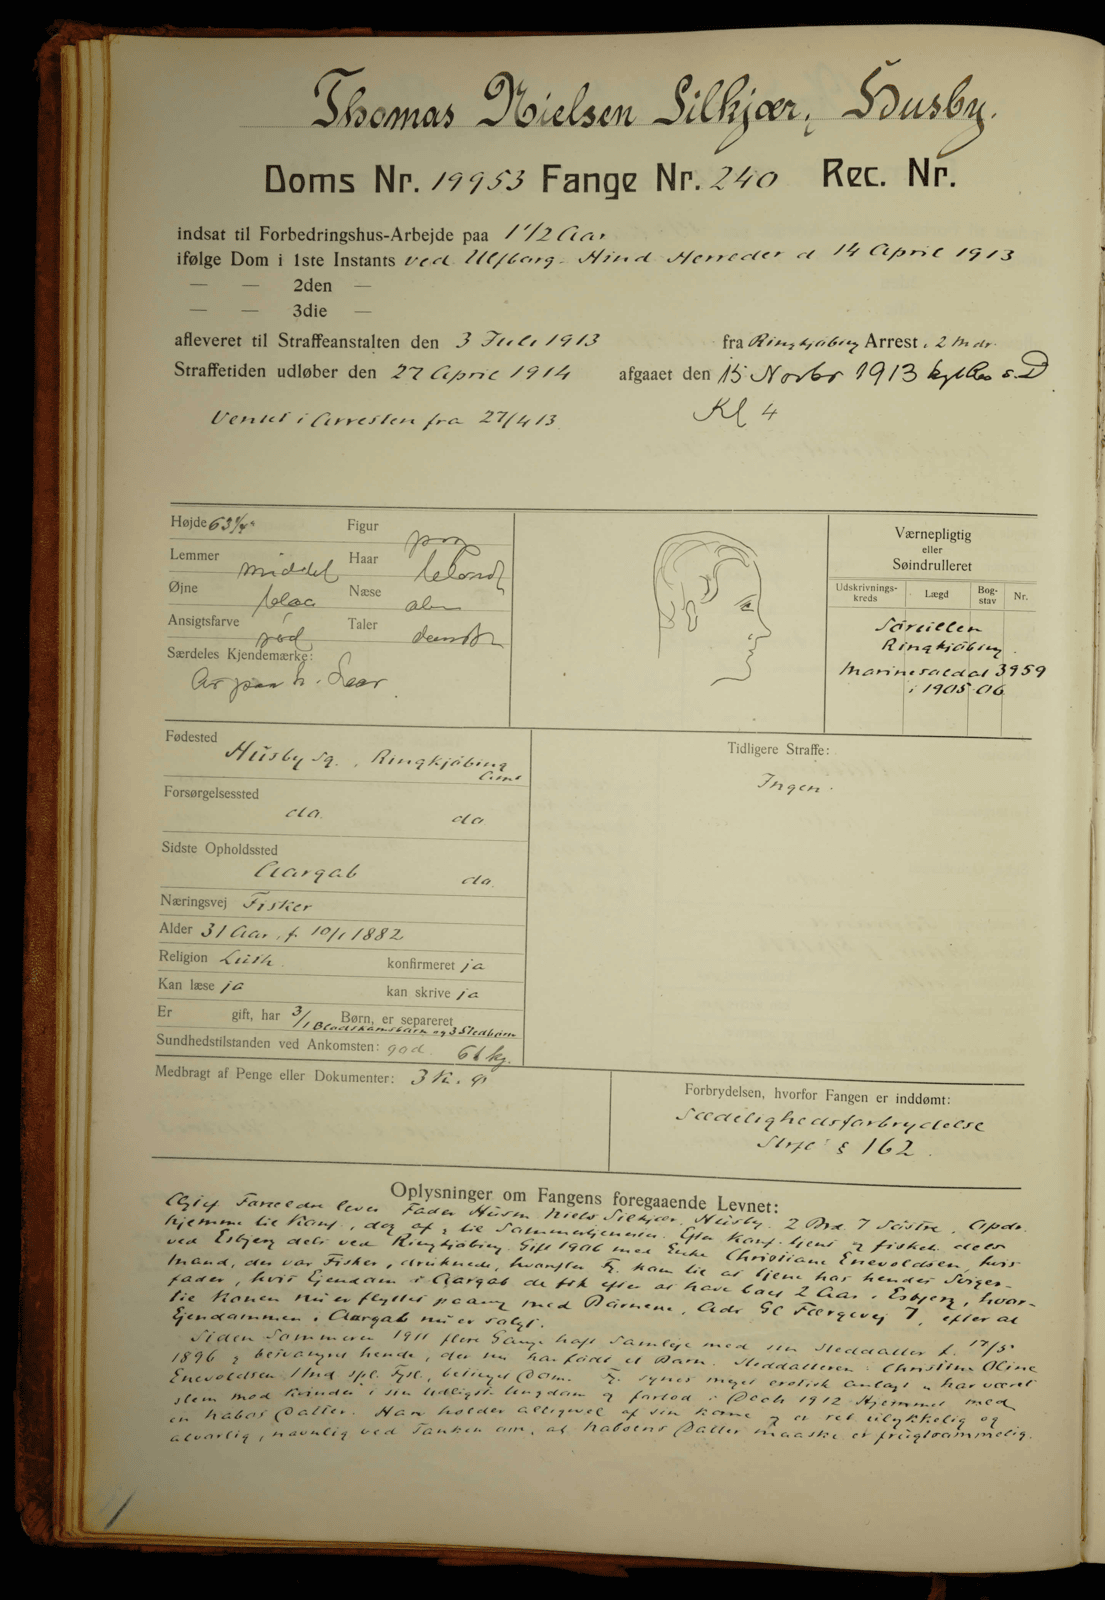 Thomas Nielsen Silkjær, Husby.
Doms Nr. 19953 Fange Nr. 240 Rec. Nr.
indsat til Forbedringshus-Arbejde paa 1 1/2 Aar
ifølge Dom i 1ste Instants ved Ulfborg-Hind Herreder d 14 April 1913
— — 2den —
— — 3die —
afleveret til Straffeanstalten den 3 Juli 1913 fra Ringkjøbing Arrest, 2 Mdr.
Straffetiden udløber den 27 April 1914 afgaaet den 15 Novbr 1913
Kl 4
Ventet i Arresten fra 27/4 13
Højde 63 1/4" Figur
Lemmer middel Haar blond
Øjne blaa Næse alm
Ansigtsfarve rød Taler dansk
Særdeles Kjendemærke:
Ar paa h. Laar.
Værnepligtig
eller
Søindrulleret
Udskrivnings-kreds Lægd Bog-stav Nr.
Sørullen
Ringkjøbing
Marinesoldat 3959
i 1905-06
Fødested Husby Sg., Ringkjøbing
Amt
Forsørgelsessted do. do
Sidste Opholdssted
Aargab do.
Næringsvej Fisker
Alder 31 Aar, f. 10/1 1882
Religion Luth. konfirmeret ja
Kan læse ja kan skrive ja
Er gift, har 3/1 Børn, er separeret
1 Blodskamsbarn og 3 Stedbørn
Sundhedstilstanden ved Ankomsten: god. kg.
Medbragt af Penge eller Dokumenter: 3 Kr.
Tidligere Straffe:
Ingen.
Forbrydelsen, hvorfor Fangen er inddømt:
Sædelighedsforbrydelse
Strfl § 162.
Oplysninger om Fangens foregaaende Levnet:
Forældre lever Fader Husm Niels Silkjær, Husby. 2 Brd. 7 Søstre. Opdr.
hjemme til Konf., dog af og til Sommertjeneste. Efter Konf. tjent og fisket dels
ved Esbjerg dels ved Ringkjøbing. Gift 1906 med Enke Christiane Enevoldsen, hvis
Mand, der var Fisker, druknede, hvorefter F. kom til at tjene hos hendes Sviger-
fader, hvis Ejendom i Aargab de fik efter at have boet 2 Aar i Esbjerg, hvor-
til Konen nu er flyttet paany med Børnene, Adr Gl Færgevej 7, efter at
Ejendommen i Aargab nu er solgt.
Siden Sommeren 1911 flere Gange haft Samleje med sin Steddatter f. 17/5
1896 og besvangret hende, der nu har født et Barn. Steddatteren: Christine Oline
Enevoldsen. F. synes meget erotisk anlagt og har været
slem mod Kvinder i sin tidligste Ungdom og forlod i Decb 1912 Hjemmet med
en Nabos Datter. Han holder alligevel af sin Kone og er ret ulykkelig og
alvorlig, navnlig ved Tanken om, at Naboens Datter maaske er frugtsommelig.